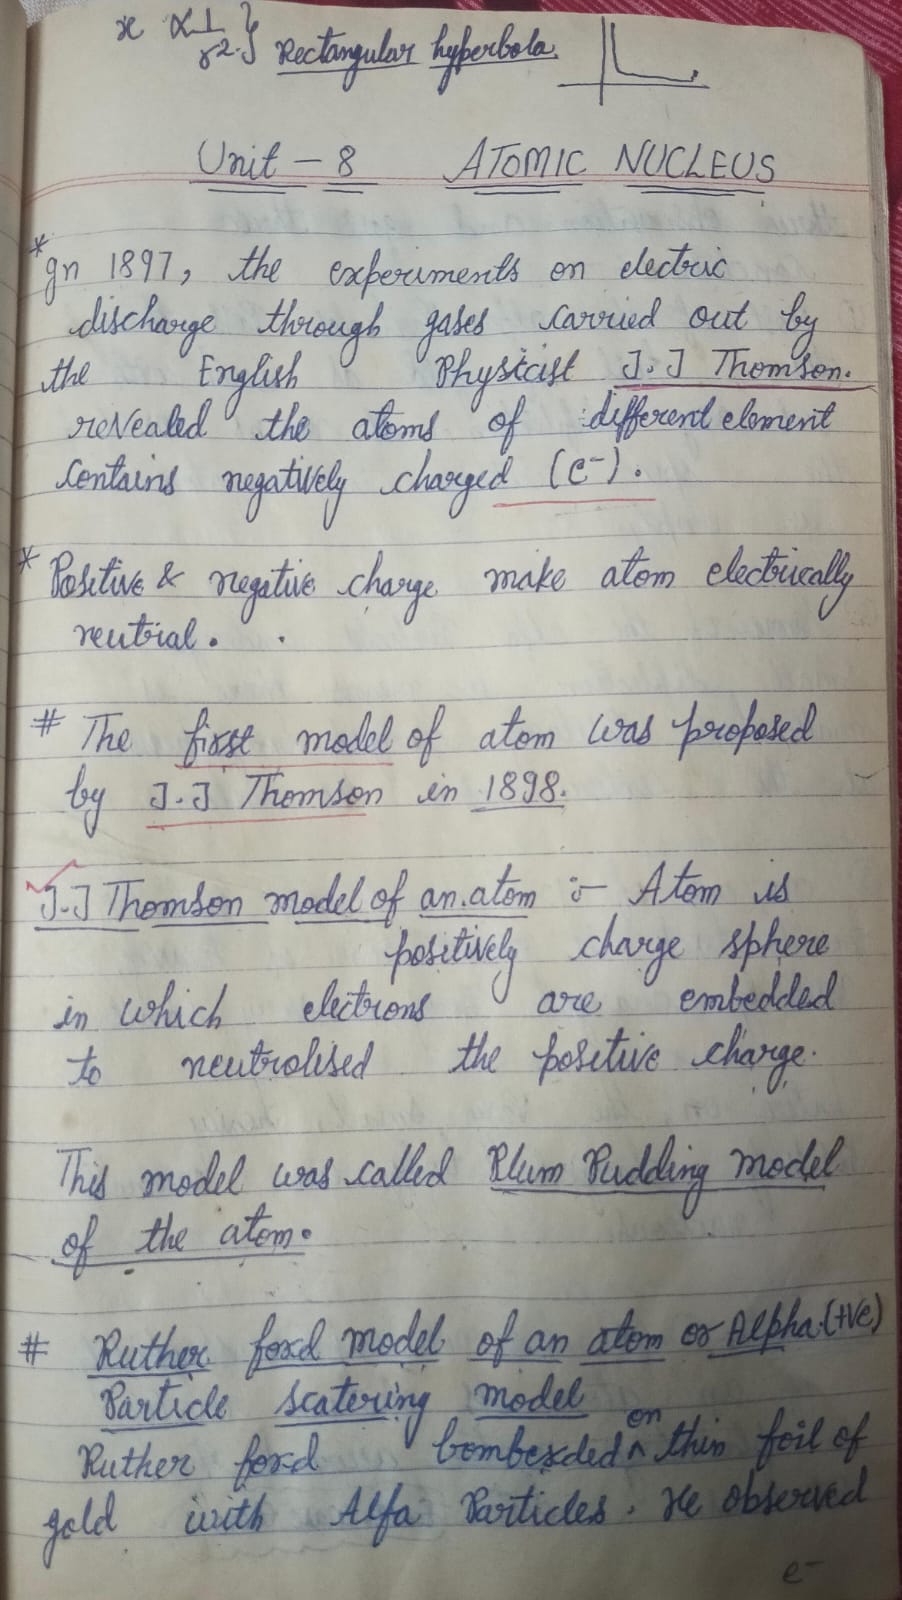 x ∝ 1/r². } Rectangular hyperbola.
Unit - 8 ATOMIC NUCLEUS
* In 1897, the experiments on electric
discharge through gases carried out by
the English Physicist J.J Thomson.
revealed the atoms of different element
Contains negatively charged (e-).
* Positive & negative charge make atom electrically
neutrial.
# The first model of atom was proposed
by J.J Thomson in 1898.
J.J Thomson model of an atom :- Atom is
positively charge sphere
in which electrons are embedded
to neutrolised the positive charge.
This model was called Plum Pudding model
of the atom.
# Ruther ford model of an atom or Alpha (+ve)
Particle scatering model
Ruther ford bomberded on thin foil of
gold with Alfa Particles. He observed
e-